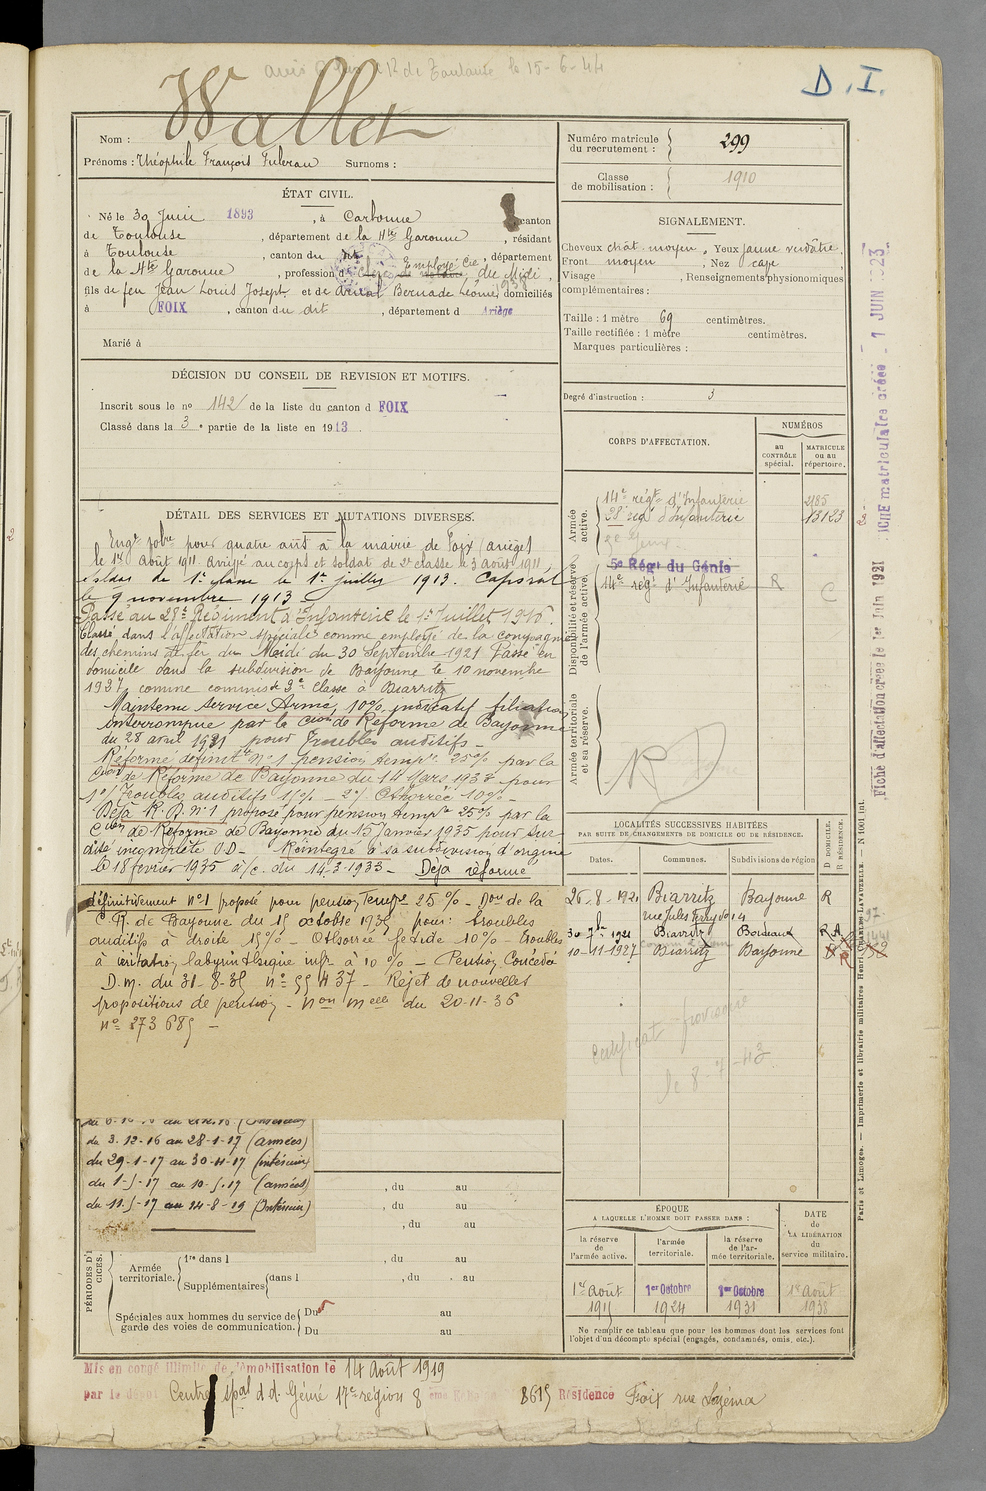 D.I.
Wallet
Nom :
Prénoms : Théophile François Fulcran Surnoms :
Numéro matricule du recrutement : 299
Classe de mobilisation : 1910
ÉTAT CIVIL.
Né le 30 Juin 1893, à Carbonne, canton
de Toulouse, département de la Hte Garonne, résidant
à Toulouse, canton du dit, département
de la Hte Garonne, profession d Employé Cie du Midi,
fils de feu Jean Louis Joseph et de Bernade Léonie, domiciliés
à FOIX, canton du dit, département d Ariège
Marié à
SIGNALEMENT.
Cheveux chât. moyen, Yeux jaune verdâtre
Front moyen, Nez cave
Visage , Renseignements physionomiques
complémentaires :
Taille : 1 mètre 69 centimètres.
Taille rectifiée : 1 mètre centimètres.
Marques particulières :
Degré d'instruction : 3
DÉCISION DU CONSEIL DE REVISION ET MOTIFS.
Inscrit sous le no 142 de la liste du canton d FOIX
Classé dans la 3e partie de la liste en 1913.
CORPS D'AFFECTATION.
NUMÉROS
au CONTRÔLE spécial.
MATRICULE ou au répertoire.
Armée active.
14e régt d'Infanterie 2185
28e régt d'Infanterie 13123
Disponibilité et réserve de l'armée active.
5e Régt du Génie
14e regt d'Infanterie R C
Armée territoriale et sa réserve.
RD
DÉTAIL DES SERVICES ET MUTATIONS DIVERSES.
Engé volre pour quatre ans à la mairie de Foix (ariège)
le 1er Août 1911. Arrivé au corps et soldat de 2e classe le 3 Août 1911,
soldat de 1e classe le 1er juillet 1913. Caporal
le 9 novembre 1913.
Passé au 28e Régiment d'Infanterie le 1er Juillet 1916.
Classé dans l'affectation spéciale comme employé de la compagnie
des chemins de fer du Midi du 30 Septembre 1921 Passé en
domicile dans la subdivision de Bayonne le 10 novembre
1927 comme commis de 3e classe à Biarritz
Maintenu service Armé, 10% indicatif filiation
interrompue par la Cion de Réforme de Bayonne
du 28 avril 1931 pour troubles auditifs -
Réformé définitt No 1 pension tempre 25% par la
Cion de Réforme de Bayonne du 14 Mars 1933 pour
1o/ Troubles auditifs 15% - 2o/ Othorrée 10% -
Déjà R.D. No 1 proposé pour pension tempre 25% par la
Cion de Réforme de Bayonne du 15 Janvier 1935 pour sur-
dité incomplète O D - Réintégré à sa subdivision d'origine
le 18 février 1935 a/c. du 14.3.1933 - Déjà réformé
définitivement no 1 proposé pour pension Tempre 25% - Don de la
C.R. de Bayonne du 15 octobre 1935 pour : troubles
auditifs à droite 15% - Othorrée fétide 10% - Troubles
à irritation labyrinthique infr à 10% - Pension Concédée
D.m. du 31-8-35 no 55437 - Rejet de nouvelles
propositions de pension - Non mcelle du 20-11-36
no 273685 -
du 3.12-16 au 28-1-17 (armées)
du 29-1-17 au 30-4-17 (intérieur)
du 1-5-17 au 10-5-17 (armées)
du 11-5-17 au 14-8-19 (Intérieur)
, du au
, du au
, du au
Armée territoriale. 1re dans l , du au
Supplémentaires dans l , du au
Spéciales aux hommes du service de garde des voies de communication.
Du au
Du au
LOCALITÉS SUCCESSIVES HABITÉES
PAR SUITE DE CHANGEMENTS DE DOMICILE OU DE RÉSIDENCE.
Dates. Communes. Subdivisions de région D DOMICILE. R RÉSIDENCE.
26-8-1921 Biarritz Bayonne R
rue Jules Ferry no 14
30 7bre 1921 Biarritz Bordeaux R
10-11-1927 Biarritz Bayonne
Certificat provisoire
le 8-7-43
ÉPOQUE
A LAQUELLE L'HOMME DOIT PASSER DANS :
la réserve de l'armée active.
l'armée territoriale.
la réserve de l'armée territoriale.
DATE de LA LIBÉRATION du service militaire.
1er Août 1915
1er Octobre 1924
1er Octobre 1931
1er Août 1938
Ne remplir ce tableau que pour les hommes dont les services font
l'objet d'un décompte spécial (engagés, condamnés, omis, etc.).
Mis en congé illimité de démobilisation le 14 Août 1919
par le dépôt Centre spal d d. Génie 17e région 8 8615 Résidence Foix rue
Fiche d'affectation créée le 1er Juin 1921
FICHE matriculaire créée - 1 JUIN 1923
Paris et Limoges. — Imprimerie et librairie militaires Henri CHARLES-LAVAUZELLE. — N 1001 int.